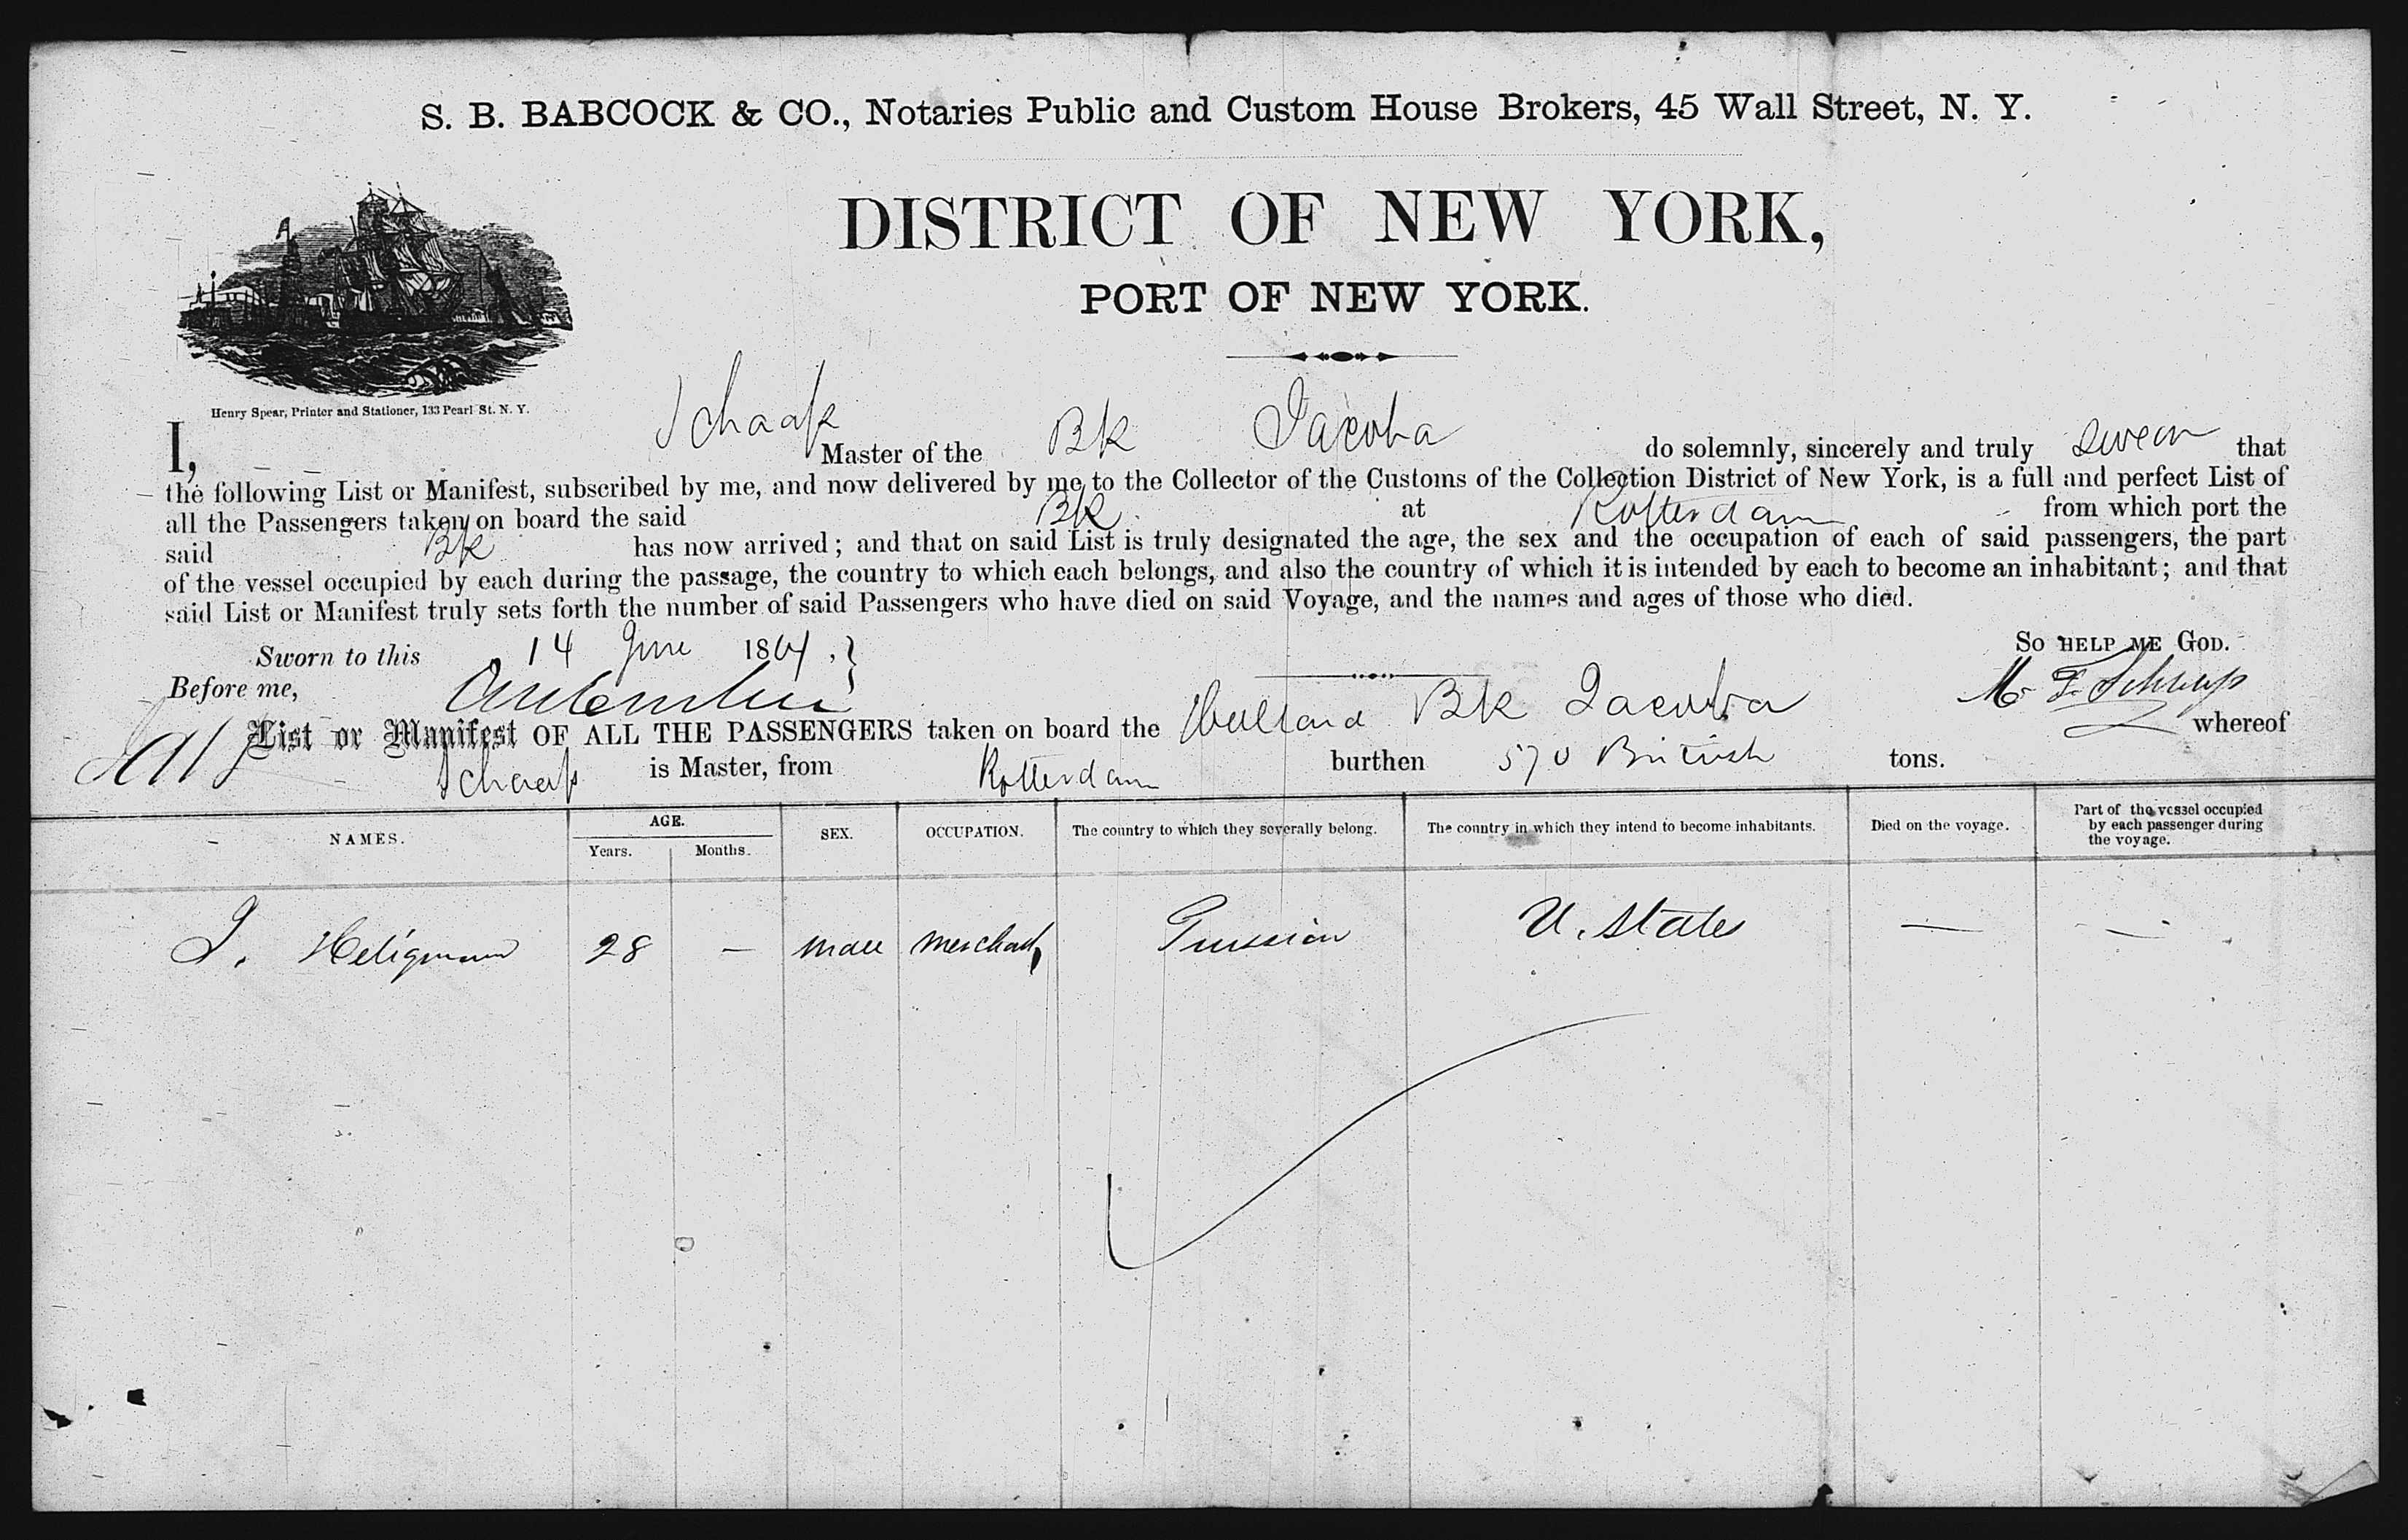 S. B. BABCOCK & CO., Notaries Public and Custom House Brokers, 45 Wall Street, N. Y.
DISTRICT OF NEW YORK,
PORT OF NEW YORK.
Henry Spear, Printer and Stationer, 133 Pearl St. N. Y.
I, Schaap Master of the Bk Jacoba do solemnly, sincerely and truly swear that
the following List or Manifest, subscribed by me, and now delivered by me to the Collector of the Customs of the Collection District of New York, is a full and perfect List of
all the Passengers taken on board the said Bk at Rotterdam from which port the
said Bk has now arrived; and that on said List is truly designated the age, the sex and the occupation of each of said passengers, the part
of the vessel occupied by each during the passage, the country to which each belongs, and also the country of which it is intended by each to become an inhabitant; and that
said List or Manifest truly sets forth the number of said Passengers who have died on said Voyage, and the names and ages of those who died.
Sworn to this 14 June 1864, So help me God.
Before me, Schaap
List or Manifest OF ALL THE PASSENGERS taken on board the Holland Bk Jacoba whereof
Schaap is Master, from Rotterdam burthen 570 British tons.
NAMES. AGE. Years. Months. SEX. OCCUPATION. The country to which they severally belong. The country in which they intend to become inhabitants. Died on the voyage. Part of the vessel occupied by each passenger during the voyage.
J. Heligmann 28 — male merchant Prussian U. States — —